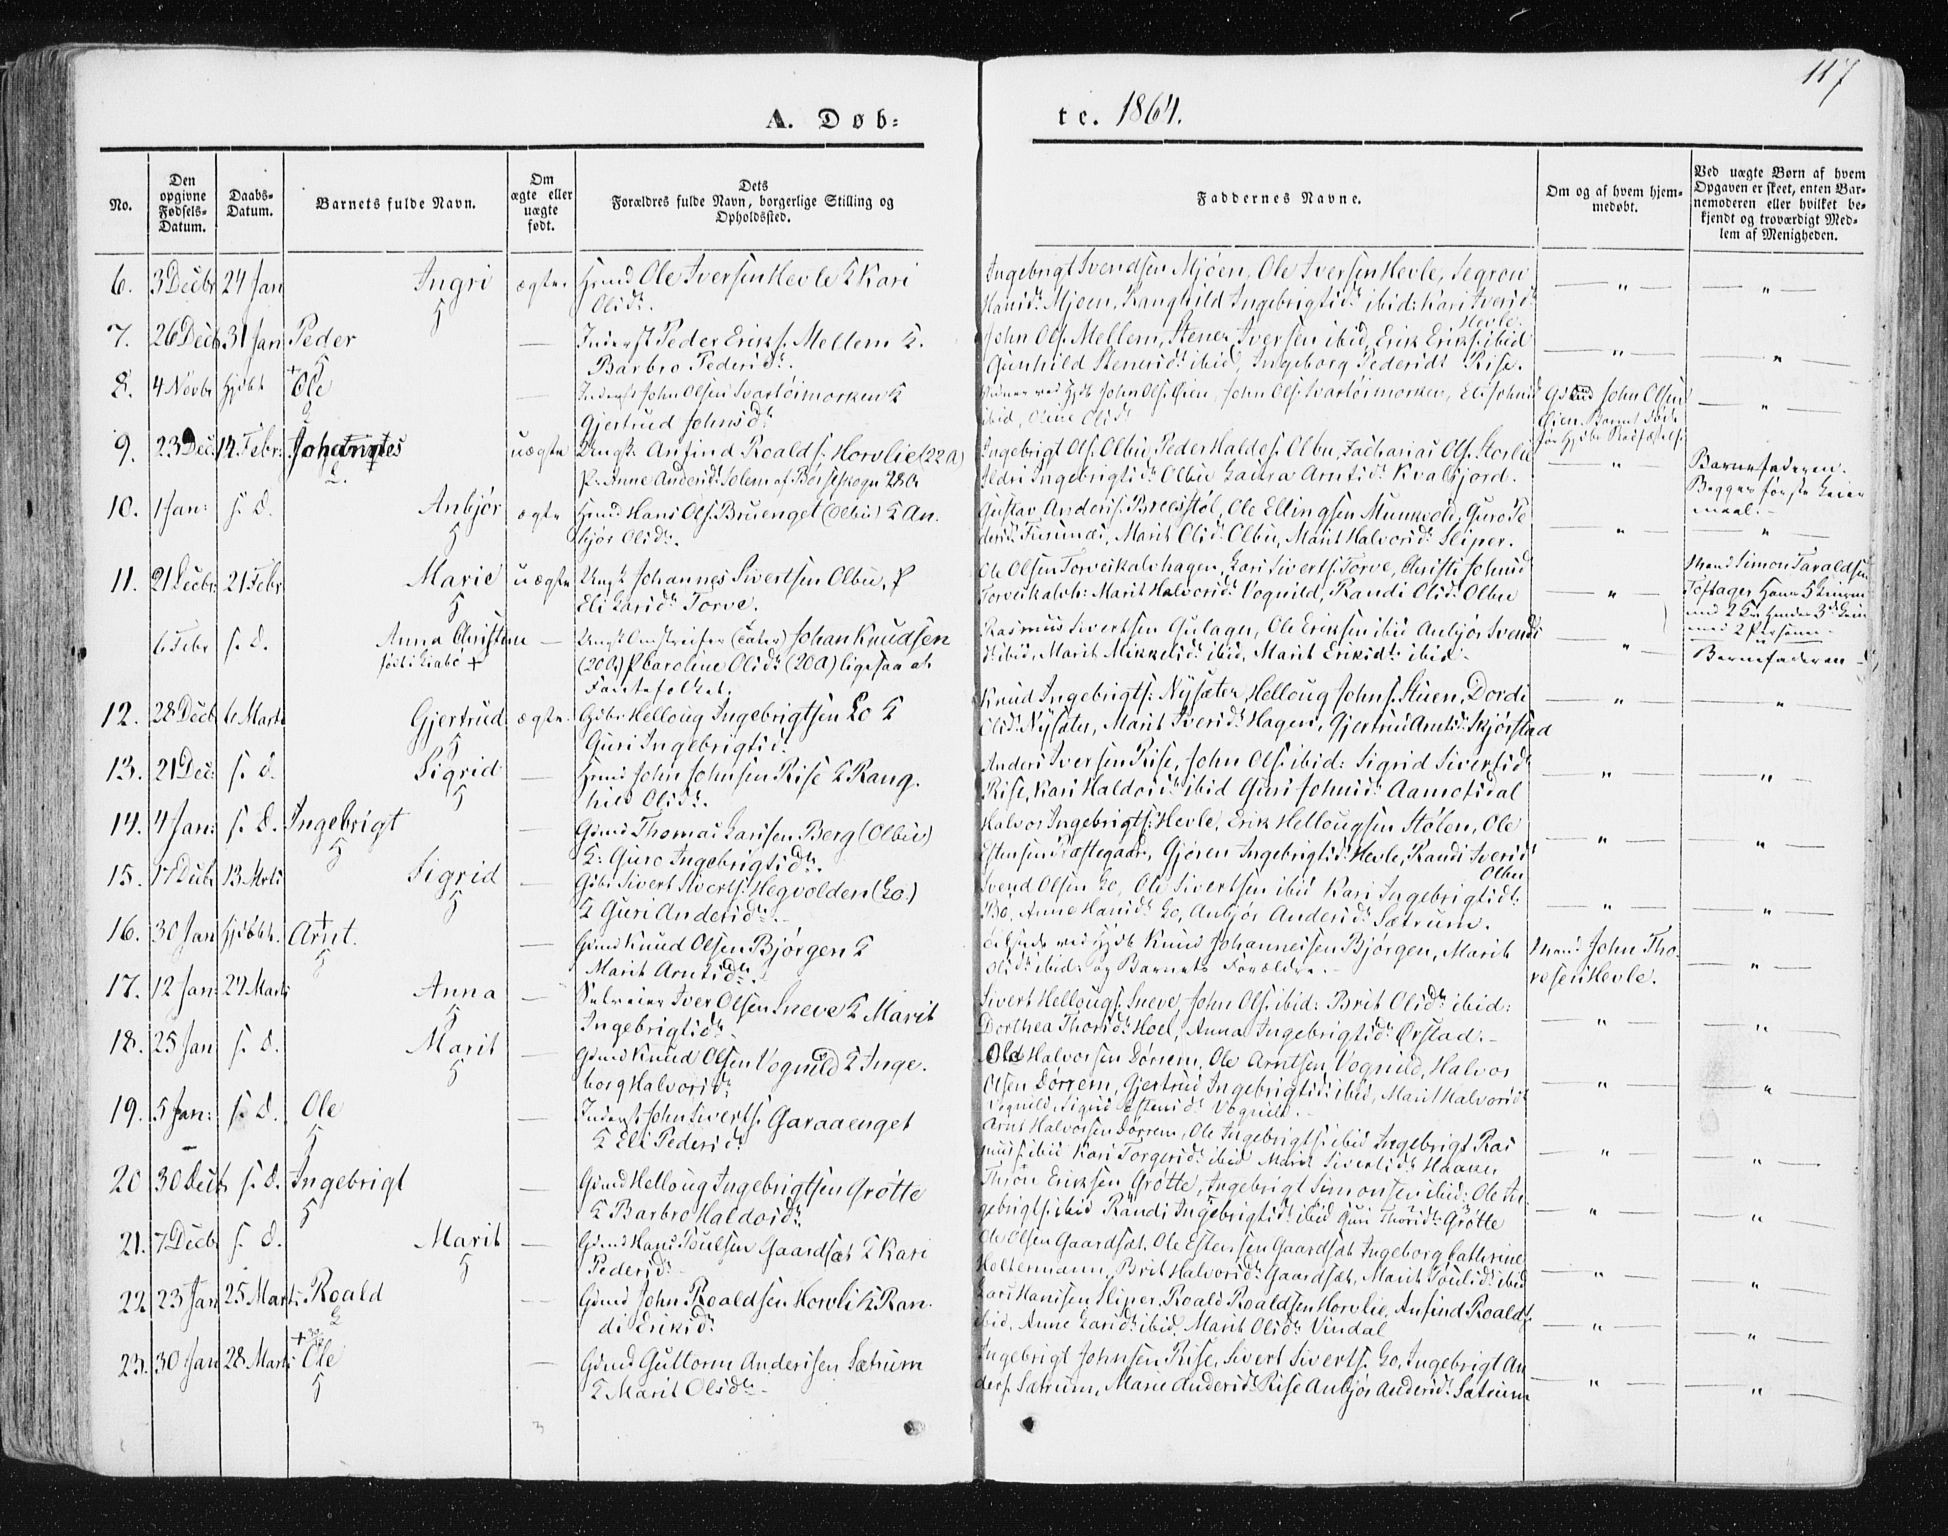 117
A. Døb:
te. 1864.
No.
Den opgivne Fødsels-Datum.
Daabs-Datum.
Barnets fulde Navn.
Om ægte eller uægte født.
Dets Forældres fulde Navn, borgerlige Stilling og Opholdssted.
Faddernes Navne.
Om og af hvem hjemmedøbt.
Ved uægte Børn af hvem Opgaven er skeet, enten Barnemoderen eller hvilket bekjendt og troværdigt Medlem af Menigheden.
6. 3 Decbr 24 Jan Ingri ægte Ole Iversen Hevle & Kari
Olsdr.
Ingebrigt Svendsen Mjøen, Ole Iversen Hevle,
Mjoen, Ranghild Ingebrigtsdr ibid: Kari Iversdr
Hevle.
7. 26 Decb 31 Jan Peder — Inderst Peder Eriks. Mellem &
Barbro Pedersdr.
John Ols. Mellem, Stener Iversen ibid, Erik Eriks. ibid
Gunhild Stenersdr ibid, Ingeborg Pedersdr Rise.
8. 4 Novbr Hjdbt + Ole — Inderst John Olsen Svartøimorken &
Gjertrud Johnsdr
John Ols. Øien, John Ols. Svartøimorken, Eli Johnsd
ibid, Olsdr
John Olsen
Øien
9. 23 Dec: 14 Febr: Johannes uægte Ungk. Anfind Roalds. Horvlie (22 A)
P. Anne Andersdr Solem af Børseskogn 28 A
Ingebrigt Ols. Olbu, Peder Haldos. Olbu, Zacharias Ols. Storlie
Ildri Ingebrigtsdr Olbu Laura Arntsdr Kvalfjord.
Barnefaderen.
Begges første Leiermaal.
10. 1 Jan: s. D. Anbjør ægte Hans Ols. Bruenget (Olbu) & An-
bjør Olsdr.
Gustav Anders. Breestøl, Ole Ellingsen Munkvole, Guro Pe-
dersdr Furunæs, Marit Olsdr Olbu, Marit Halvorsdr Sliper.
11. 21 Decbr: 21 Febr Marie uægte Ungk Johannes Sivertsen Olbu, P
Eli Larsdr Torve.
Ole Olsen Torveikalvhagen, Lars Siverts. Torve, Johnsd
Torveikalvh: Marit Halvorsdr Vognild, Randi Olsdr Olbu
Simon Taraldsen
Toftager
6 Febr s. D. Anna Christine —
Johan Knudsen
(20 A) P Caroline Olsdr (20 A) ligesaa af
Fantefolket.
Rasmus Sivertsen Gulager, Ole Eriksen ibid Anbjør Svends
dr ibid, Marit Mikkelsdr ibid, Marit Eriksdr ibid.
Barnefaderen
12. 28 Decb 6 Marts Gjertrud ægte Gdbr Helloug Ingebrigtsen Lo &
Guri Ingebrigtsd.
Knud Ingebrigts: Nysæter, Helloug Johns. Stuen, Dordi
Olsdr Nysæter, Marit Iversdr Hagen, Gjertrud Arntsdr Skjørstad
13. 21 Dec: s. D. Sigrid — John Johnsen Rise & Rang-
hild Olsdr.
Anders Iversen Rise, John Ols. ibid: Sigrid Siversdr
Rise, Kari Haldosdr ibid Guri Johnsdr Aamotsdal
14. 4 Jan: s. D. Ingebrigt — Gdmd Thomas Larsen Berg (Olbu)
&: Guro Ingebrigtsdr.
Halvor Ingebrigts: Hevle, Erik Hellougsen Stølen, Ole
Estensen Præstegaard, Gjøren Ingebrigtsdr Hevle, Randi Iversdr
Olbu
15. 17 Decbr 13 Mrts Sigrid — Gdbr Sivert Siverts. Hegvolden (Lo.)
& Guri Andersdr.
Svend Olsen Lo, Ole Sivertsen ibid Kari Ingebrigtsdr
Bö, Anne Hansdr Lo, Anbjør Andersdr Sætrum.
16. 30 Jan Hjdbt. + Arnt. — Gdmd Knud Olsen Bjørgen &
Marit Arntsdr.
Knud Johannessen Bjørgen, Marit
Olsdr ibid: og Barnets Forældre.
John Tho-
resen Hevle.
17. 12 Jan: 27 Marts Anna — Selveier Iver Olsen Sneve & Marit
Ingebrigtsdr
Sivert Hellougs. Sneve, John Ols. ibid: Brit Olsdr ibid:
Dorthea Thorsdr Hoel, Anna Ingebrigtsdr Ørstad.
18. 25 Jan s. D. Marit — Gdmd Knud Olsen Vognild & Inge-
borg Halvorsdr
Ole Halvorsen Dørrem, Ole Arntsen Vognild, Halvor
Olsen Dørrem, Gjertrud Ingebrigtsdr ibid, Marit Halvorsdr
Vognild, Sigrid Estensdr Vognild.
19. 5 Jan: s. D. Ole — Inderst John Siverts. Garaaenget
& Eli Pedersdr
Arnt Halvorsen Dørrem, Ole Ingebrigts. ibid Ingebrigt Ras-
mus. ibid Kari Torgersdr ibid Marit Sivertsdr Haaker
20 30 Decb s. D. Ingebrigt — Gdmd Helloug Ingebrigtsen Grøtte
& Barbro Haldosdr
Thron Eriksen Grøtte, Ingebrigt Simonsen ibid: Ole In-
gebrigts. ibid Randi Ingebrigtsdr ibid Guri Thorsdr Grøtte
21. 7 Decb s. D. Marit — Gdmd Hans Poulsen Gaardsæt & Kari
Pedersdr
Ole Olsen Gaardsæt, Ole Estensen Gaardsæt Ingeborg Cathrine
Holtermann, Brit Halvorsdr Gaardsæt, Marit Poulsdr ibid
22. 23 Jan 25 Marts. Roald — Gdmd John Roaldsen Horvli & Ran-
di Eriksdr
Lars Hansen Sliper, Roald Roaldsen Horvlie, Anfind Roalds.
ibid, Anne Larsdr ibid, Marit Olsdr Vindal
23. 30 Jan 28 Marts + Ole — Gdmd Guttorm Andersen Sætrum
& Marit Olsdr
Ingebrigt Johnsen Rise, Sivert Siverts. Lo, Ingebrigt An-
ders. Sætrum, Marie Andersdr Rise Anbjør Andersdr Sætrum